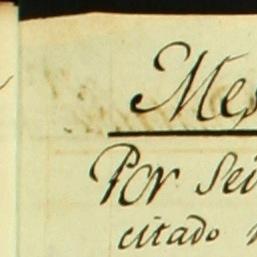 Mes
Por Sei
citado